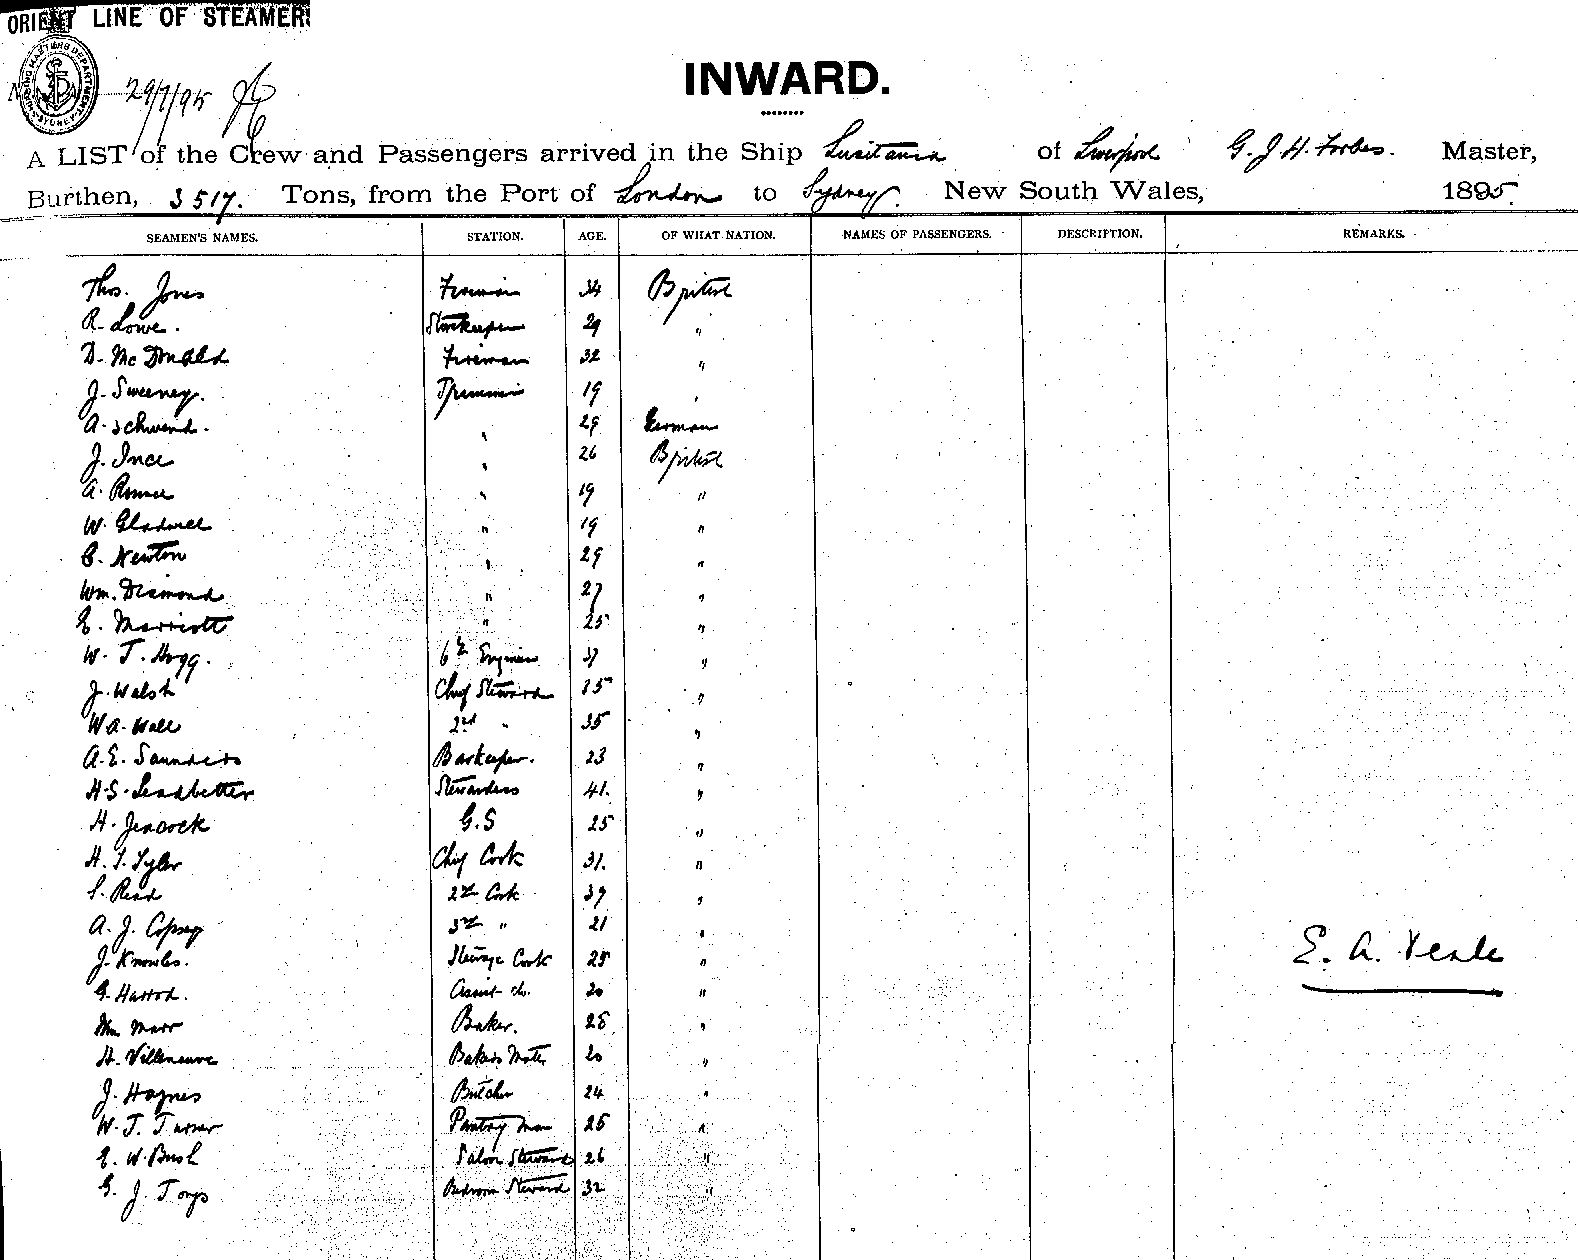 ORIENT LINE OF STEAMERS
SHIPPING MASTERS DEPARTMENT SYDNEY
29/7/95
INWARD.
A LIST of the Crew and Passengers arrived in the Ship Lusitania of Liverpool G. J. H. Forbes. Master,
Burthen, 3517. Tons, from the Port of London to Sydney. New South Wales, 1895.
SEAMEN'S NAMES. STATION. AGE. OF WHAT NATION. NAMES OF PASSENGERS. DESCRIPTION. REMARKS.
Thos. Jones Fireman 34 British
R. Lowe. Storekeeper 29 "
D. McDonald Fireman 32 "
J. Sweeney. Trimmer 19 "
A. Schwend. " 29 German
J. Ince " 26 British
A. " 19 "
W. Gladwell " 19 "
C. Newton " 29 "
Wm. Desmond " 27 "
E. Marriott " 25 "
W. T. Hogg. 6th Engineer 37 "
J. Walsh Chief Steward 35 "
W A. Wall 2nd " 35 "
A. E. Saunders Barkeeper. 23 "
H. S. Leadbetter Stewardess 41. "
H. Jeacock G.S 25 "
H. T. Tyler Chief Cook 31. "
S. Read 2nd Cook 39 "
A. J. Copsey 3rd " 21 "
J. Knowles. Steerage Cook 28 "
G. Harrod. Assist do. 20 "
Wm Marr Baker. 28 "
H. Villeneuve Bakers Mate 20 "
J. Haynes Butcher 24 "
W. T. Turner Pantry Man 25 "
E. W. Bush Saloon Steward 26 "
G. J. Toys Bedroom Steward 32 "
E. A. Veale